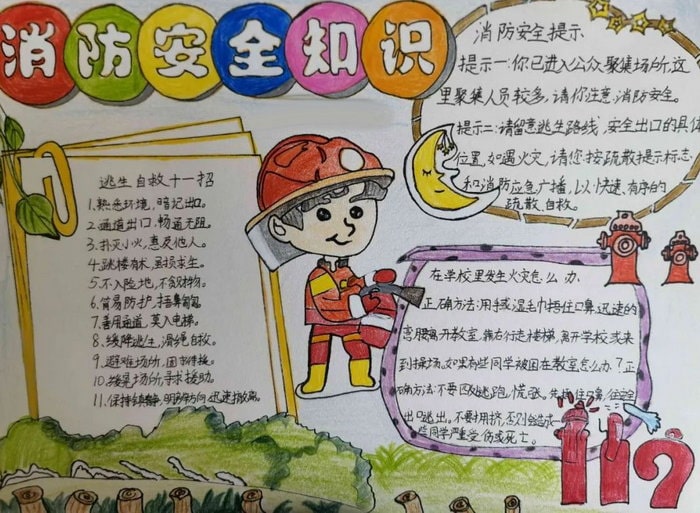 消防安全知识
逃生自救十一招
1、熟悉环境,暗记出口。
2、通道出口,畅通无阻。
3、扑灭小火,惠及他人。
4、跳楼有术,虽损求生。
5、不入险地,不贪财物。
6、简易防护,捂鼻匍匐。
7、善用通道,莫入电梯。
8、缓降逃生,滑绳自救。
9、避难场所,固守待援。
10、
11、保持镇静,明辨方向,迅速撤离。
消防安全提示、
提示一:你已进入公众聚集场所,这
里聚集人员较多,请你注意消防安全。
提示二:请留意逃生路线,安全出口的具体
位置,如遇火灾,请您按疏散提示标志
和消防应急广播,以快速、有序的
疏散、自救。
在学校里发生火灾怎么办、
正确方法:用手或湿毛巾捂住口鼻迅速的
弯腰离开教室,靠右行走楼梯,离开学校或来
到操场。如果有些同学被困在教室怎么办?正
确方法:不要四处跑,慌张。先捂住口鼻,
出口逃出,不要拥挤,否则会造成
同学严重受伤或死亡。
119